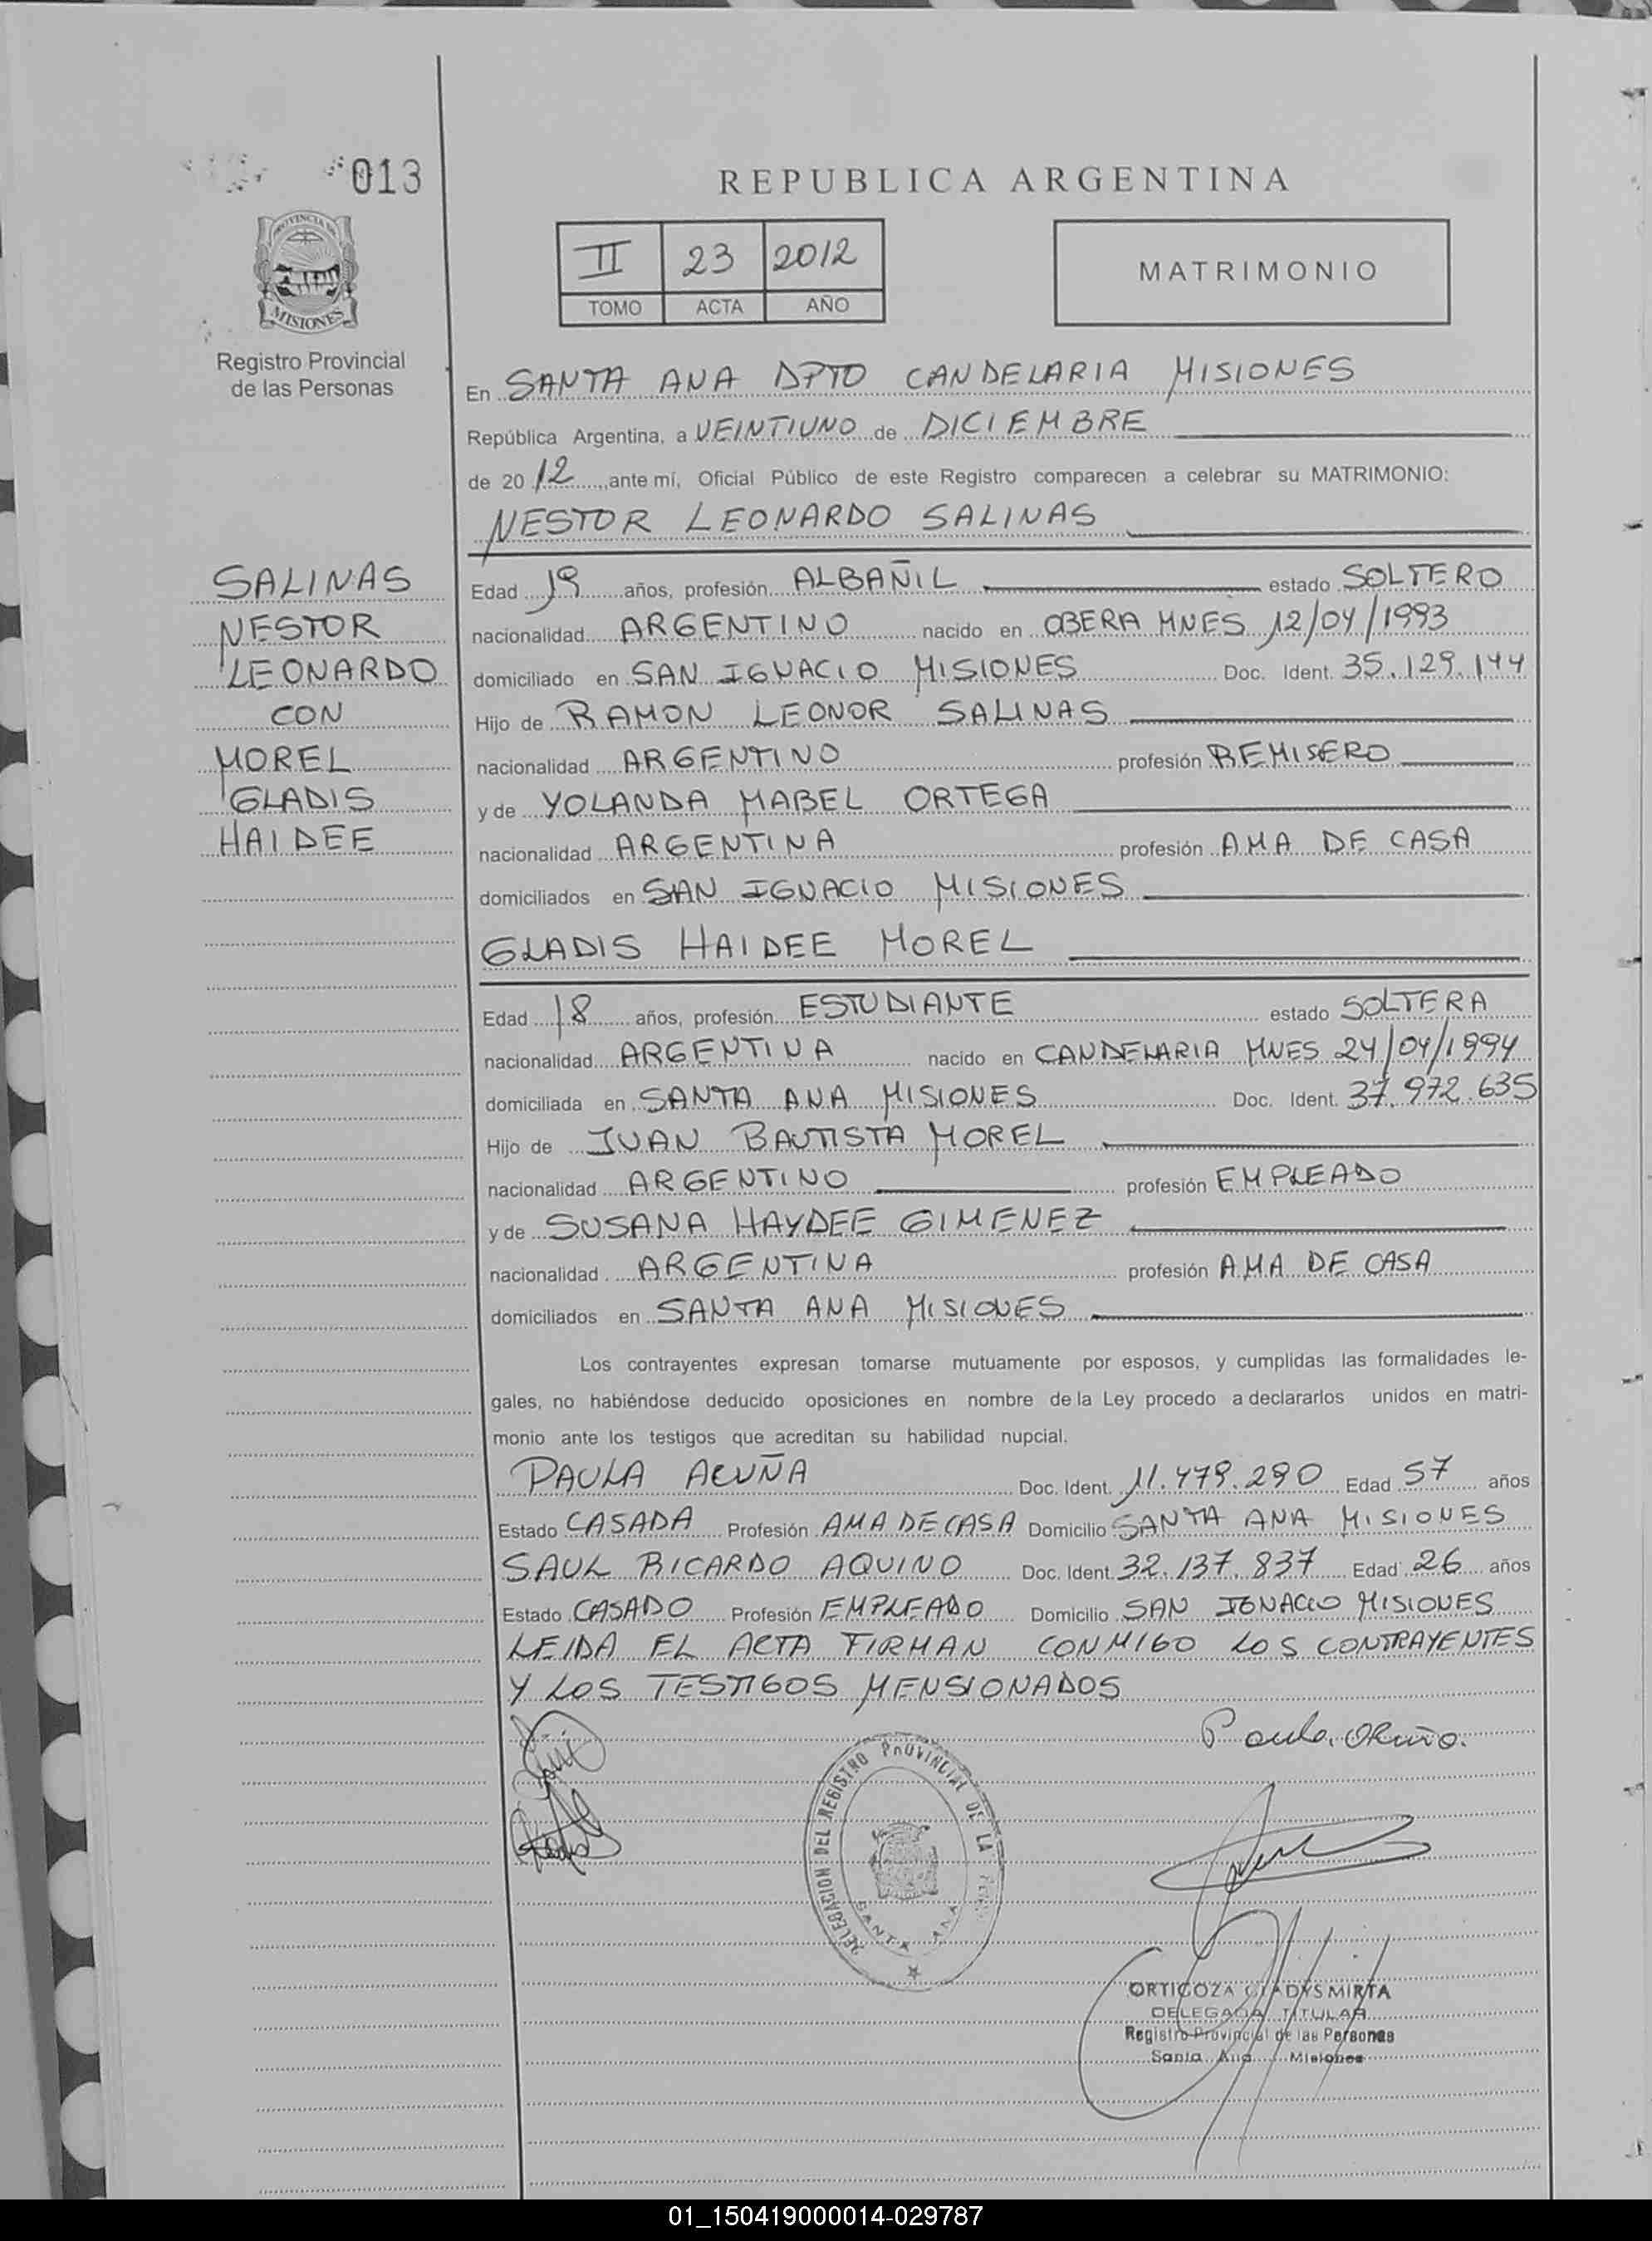 013
REPUBLICA ARGENTINA
II 23 2012
TOMO ACTA AÑO
MATRIMONIO
PROVINCIA DE
MISIONES
Registro Provincial
de las Personas
En SANTA ANA DPTO CANDELARIA MISIONES
República Argentina, a VEINTIUNO de DICIEMBRE
de 20 12, ante mí, Oficial Público de este Registro comparecen a celebrar su MATRIMONIO:
NESTOR LEONARDO SALINAS
SALINAS
NESTOR
LEONARDO
CON
MOREL
GLADIS
HAIDEE
Edad 19 años, profesión ALBAÑIL estado SOLTERO
nacionalidad ARGENTINO nacido en OBERA MNES 12/04/1993
domiciliado en SAN IGNACIO MISIONES Doc. Ident. 35.129.144
Hijo de RAMON LEONOR SALINAS
nacionalidad ARGENTINO profesión REMISERO
y de YOLANDA MABEL ORTEGA
nacionalidad ARGENTINA profesión AMA DE CASA
domiciliados en SAN IGNACIO MISIONES
GLADIS HAIDEE MOREL
Edad 18 años, profesión ESTUDIANTE estado SOLTERA
nacionalidad ARGENTINA nacido en CANDELARIA MNES 24/04/1994
domiciliada en SANTA ANA MISIONES Doc. Ident. 37.972.635
Hijo de JUAN BAUTISTA MOREL
nacionalidad ARGENTINO profesión EMPLEADO
y de SUSANA HAYDEE GIMENEZ
nacionalidad ARGENTINA profesión AMA DE CASA
domiciliados en SANTA ANA MISIONES
Los contrayentes expresan tomarse mutuamente por esposos, y cumplidas las formalidades le-
gales, no habiéndose deducido oposiciones en nombre de la Ley procedo a declararlos unidos en matri-
monio ante los testigos que acreditan su habilidad nupcial.
PAULA ACUÑA Doc. Ident. 11.479.290 Edad 57 años
Estado CASADA Profesión AMA DE CASA Domicilio SANTA ANA MISIONES
SAUL RICARDO AQUINO Doc. Ident. 32.137.837 Edad 26 años
Estado CASADO Profesión EMPLEADO Domicilio SAN IGNACIO MISIONES
LEIDA EL ACTA FIRMAN CONMIGO LOS CONTRAYENTES
Y LOS TESTIGOS MENSIONADOS
DELEGACION DEL REGISTRO PROVINCIAL DE LA
SANTA ANA
ORTIGOZA GLADYS MIRTA
DELEGADA TITULAR
Registro Provincial de las Personas
Santa Ana Misiones
01_150419000014-029787